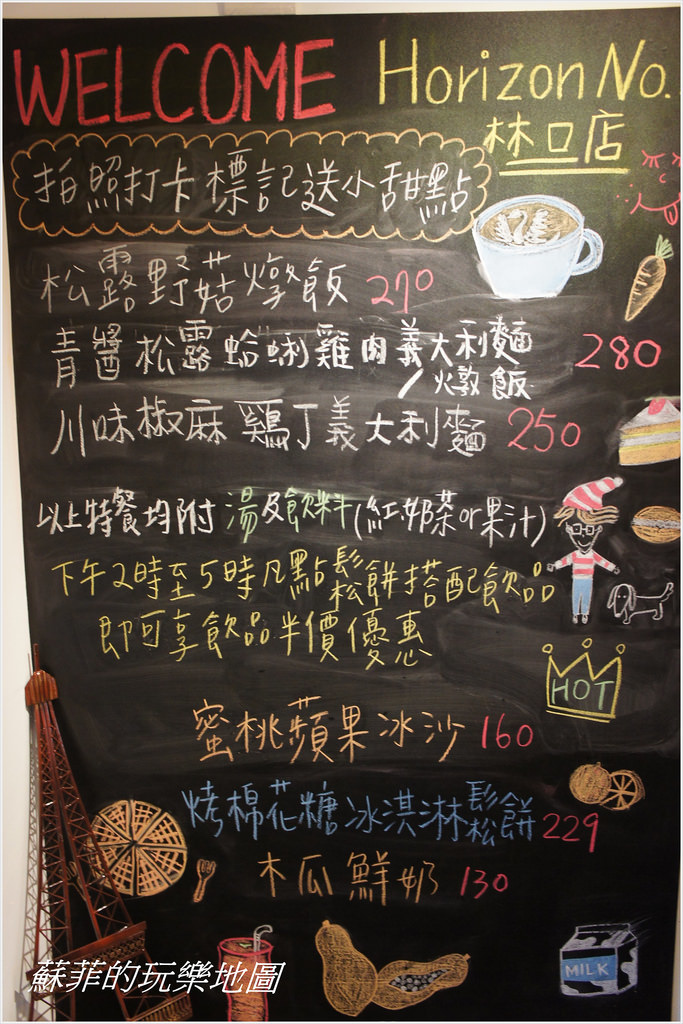 WELCOME Horizon No.
林口店
拍照打卡標記送小甜點
松露野菇燉飯 270
青醬松露蛤蜊雞肉義大利麵/燉飯 280
川味椒麻鷄丁義大利麵 250
以上特餐均附湯及飲料(紅.奶茶or果汁)
下午2時至5時凡點鬆餅搭配飲品
即可享飲品半價優惠
HOT
蜜桃蘋果冰沙 160
烤棉花糖冰淇淋鬆餅 229
木瓜鮮奶 130
MILK
蘇菲的玩樂地圖